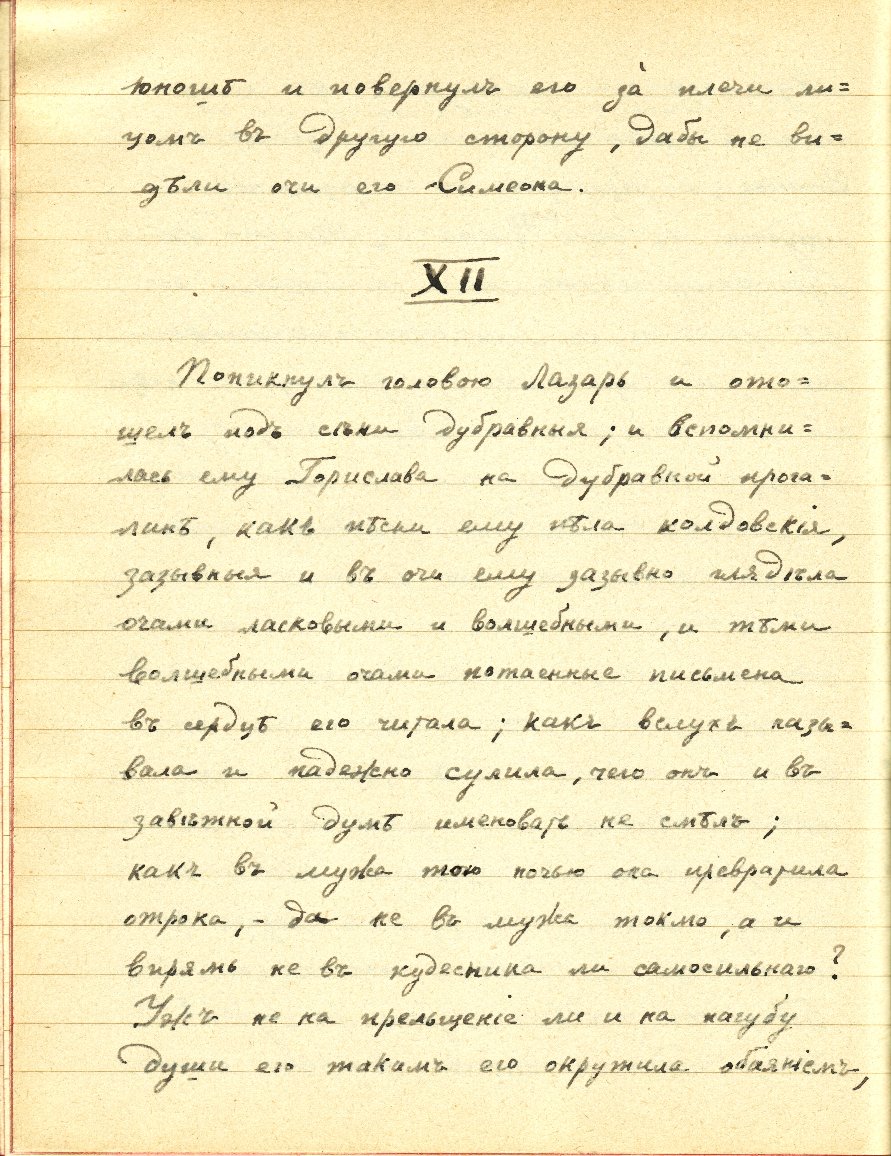 юношѣ и повернулъ его за плечи ли=
цомъ въ другую сторону, дабы не ви=
дѣли очи его Симеона.
XII
Поникнулъ головою Лазарь и ото=
шелъ подъ сѣни дубравныя; и вспомни=
лась ему Горислава на дубравной прога=
линѣ, какъ пѣсни ему пѣла колдовскія,
зазывныя и въ очи ему зазывно глядѣла
очами ласковыми и волшебными, и тѣми
волшебными очами потаенные письмена
въ сердцѣ его читала; какъ вслухъ назы=
вала и надежно сулила, чего онъ и въ
завѣтной думѣ именовать не смѣлъ;
какъ въ мужа тою ночью она превратила
отрока, – да не въ мужа токмо, а и
впрямь не въ кудесника ли самосильнаго?
Ужъ не на прельщеніе ли и на пагубу
души его такимъ его окружила обаяніемъ,